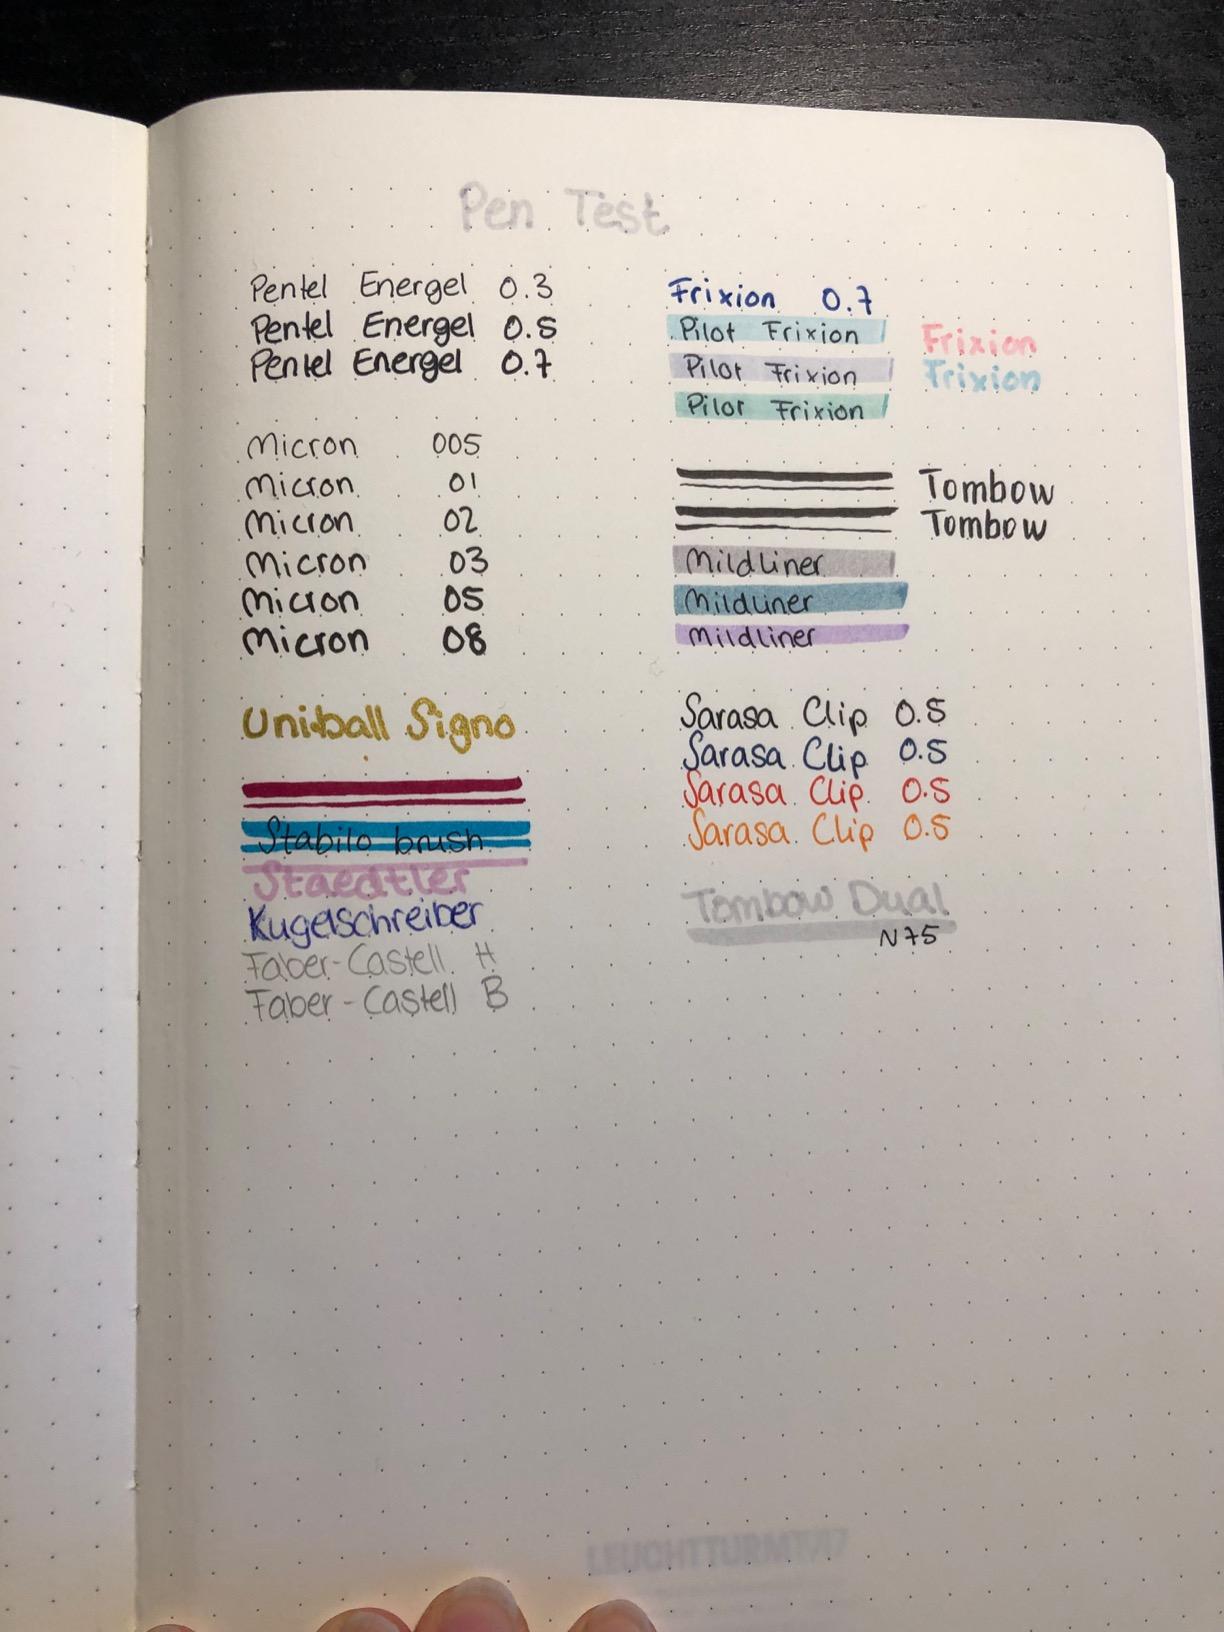 Pen Test
Pentel Energel 0.3
Pentel Energel 0.5
Pentel Energel 0.7
Micron 005
Micron 01
Micron 02
Micron 03
Micron 05
Micron 08
Uniball Signo
Stabilo brush
Staedtler
Kugelschreiber
Faber-Castell H
Faber-Castell B
Frixion 0.7
Pilot Frixion
Pilot Frixion
Pilot Frixion
Frixion
Frixion
Tombow
Tombow
Mildliner
Mildliner
Mildliner
Sarasa Clip 0.5
Sarasa Clip 0.5
Sarasa Clip 0.5
Sarasa Clip 0.5
Tombow Dual
N75
LEUCHTTURM1917